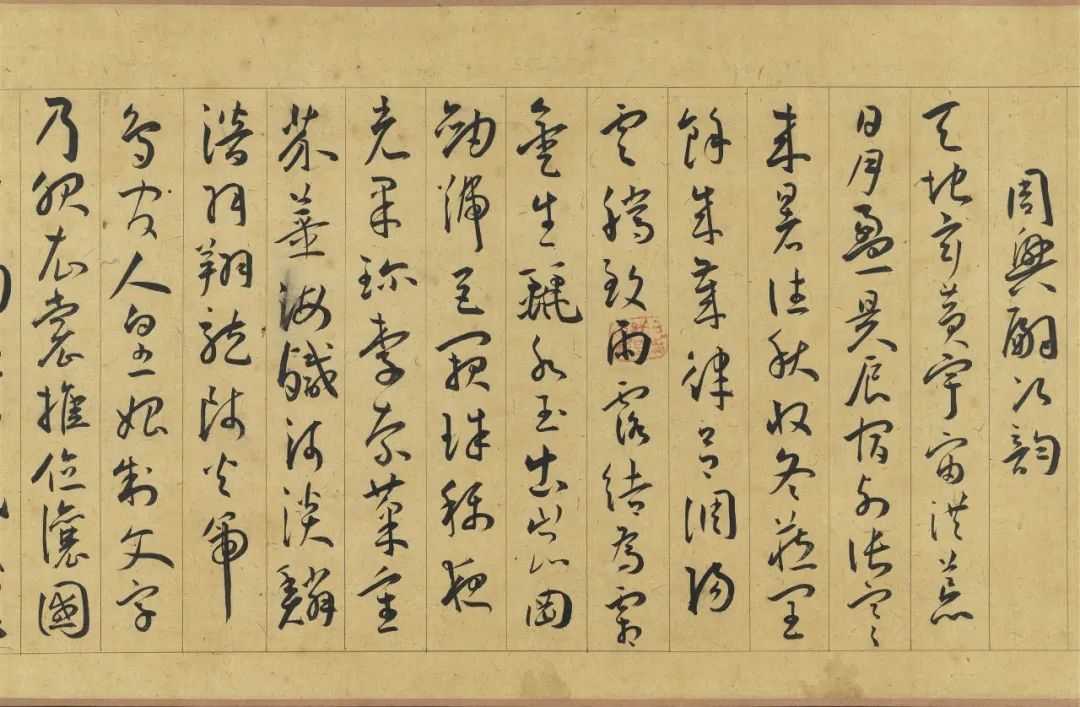 周興嗣次韵
天地玄黃宇宙洪荒
日月盈昃辰宿列張寒
来暑往秋收冬蔵閏
餘成歲律呂調陽
雲騰致雨露結為霜
金生麗水玉出崑岡
劒號巨闕珠稱夜
光果珍李柰菜重
芥薑海鹹河淡鱗
潛羽翔龍師火帝
鳥官人皇始制文字
乃服衣裳推位讓國